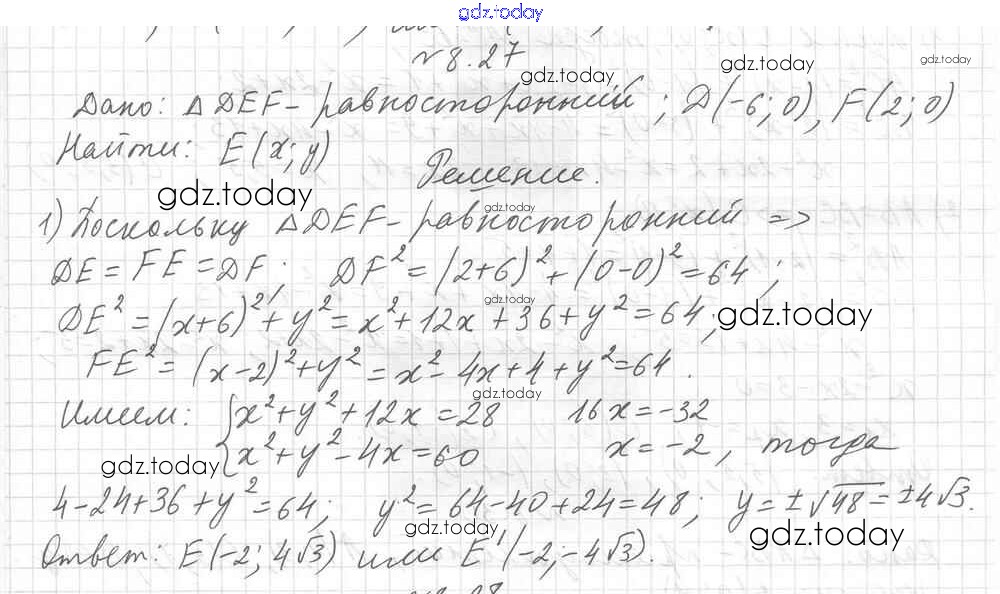 gdz.today
№ 8.27
gdz.today gdz.today gdz.today
Дано: △DEF – равносторонний; D(-6; 0), F(2; 0)
Найти: E(x; y)
Решение.
gdz.today gdz.today
1) Поскольку △DEF – равносторонний =>
DE = FE = DF; DF² = (2+6)² + (0-0)² = 64;
gdz.today
DE² = (x+6)² + y² = x² + 12x + 36 + y² = 64; gdz.today
FE² = (x-2)² + y² = x² - 4x + 4 + y² = 64.
gdz.today
Имеем: { x² + y² + 12x = 28 16x = -32
x² + y² - 4x = 60 x = -2, тогда
gdz.today
4 - 24 + 36 + y² = 64; y² = 64 - 40 + 24 = 48; y = ±√48 = ±4√3.
gdz.today gdz.today
Ответ: E(-2; 4√3) или E'(-2; -4√3).